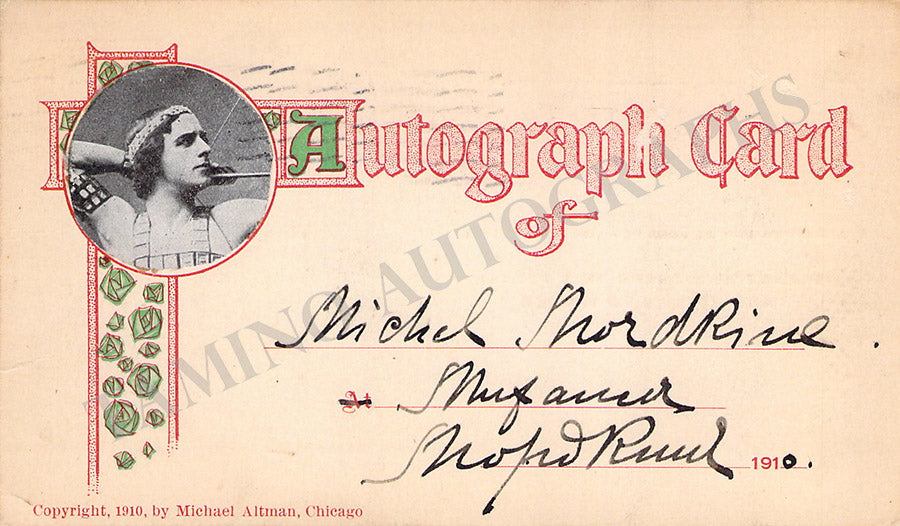 Autograph Card
of
Michel Mordkine.
At Михаил
Мордкин 1910.
Copyright, 1910, by Michael Altman, Chicago
TAMINO AUTOGRAPHS